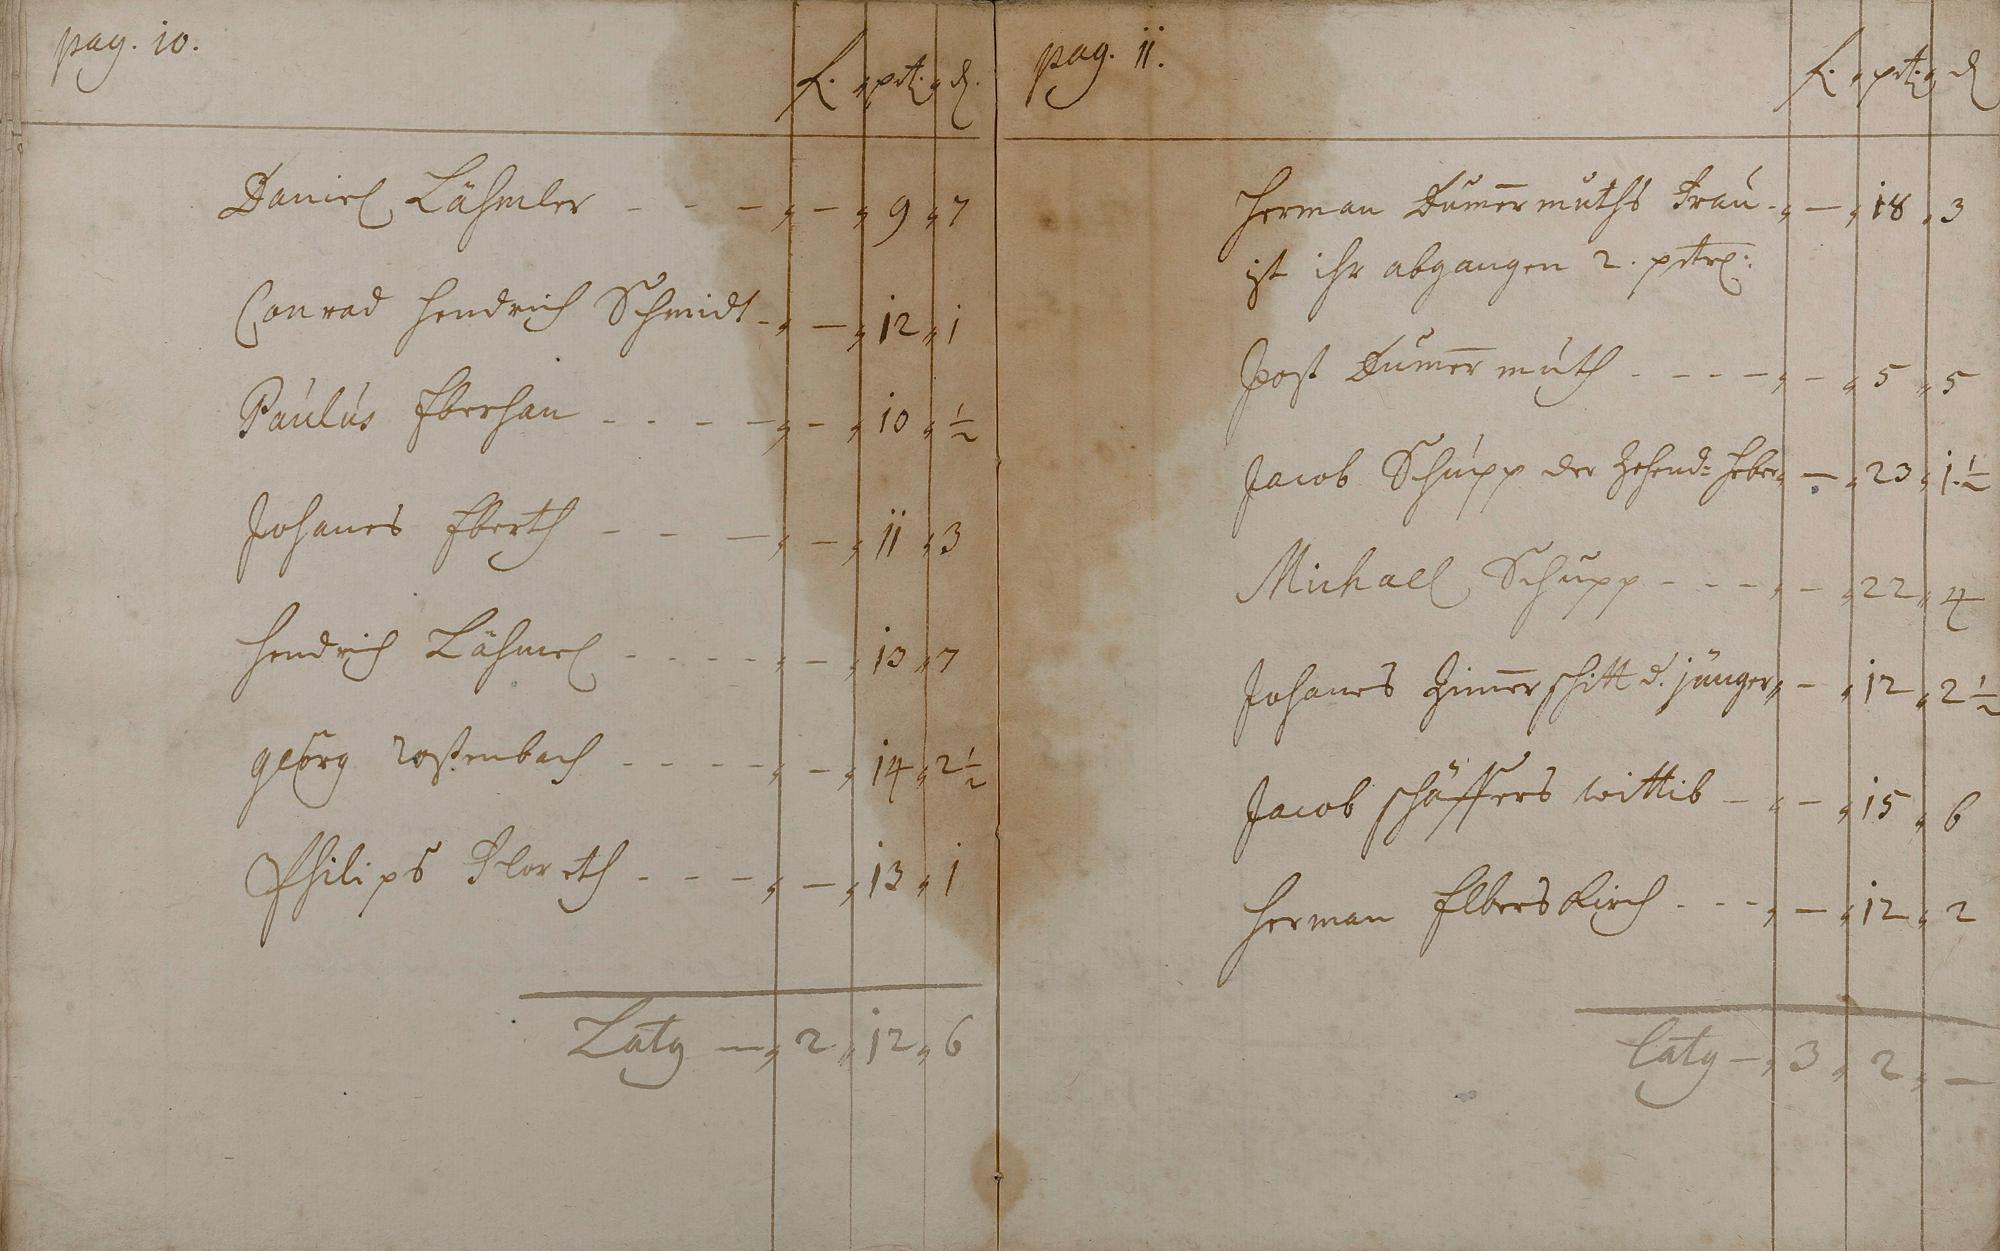 pag. 10.
f. " ptz " d.
Daniel Lähmler - - - " - " 9 " 7
Conrad Hendrich Schmidt - " - " 12 " 1
Paulus Eberhan - - - - " - " 10 " ½
Johanes Eberth - - - " - " 11 " 3
Hendrich Lähmel - - - - " - " 13 " 7
Georg Rossenbach - - - - " - " 14 " 2½
Philips Floreth - - - - " - " 13 " 1
Laty - " 2 " 12 " 6
pag. 11.
f. " ptz " d
Herman Dum̄ermuths Frau - " - " 18 " 3
ist ihr abgangen 2.
Jost Dum̄ermuth - - - - " - " 5 " 5
Jacob Schupp der Zehend= Heber " - " 23 " 1½
Michael Schupp - - - - " - " 22 " 4
Johanes Zim̄erschitt d. jünger " - " 12 " 2½
Jacob schäffers wittib - " - " 15 " 6
Herman Elberskirch - - - " - " 12 " 2
laty - " 3 " 2 " -